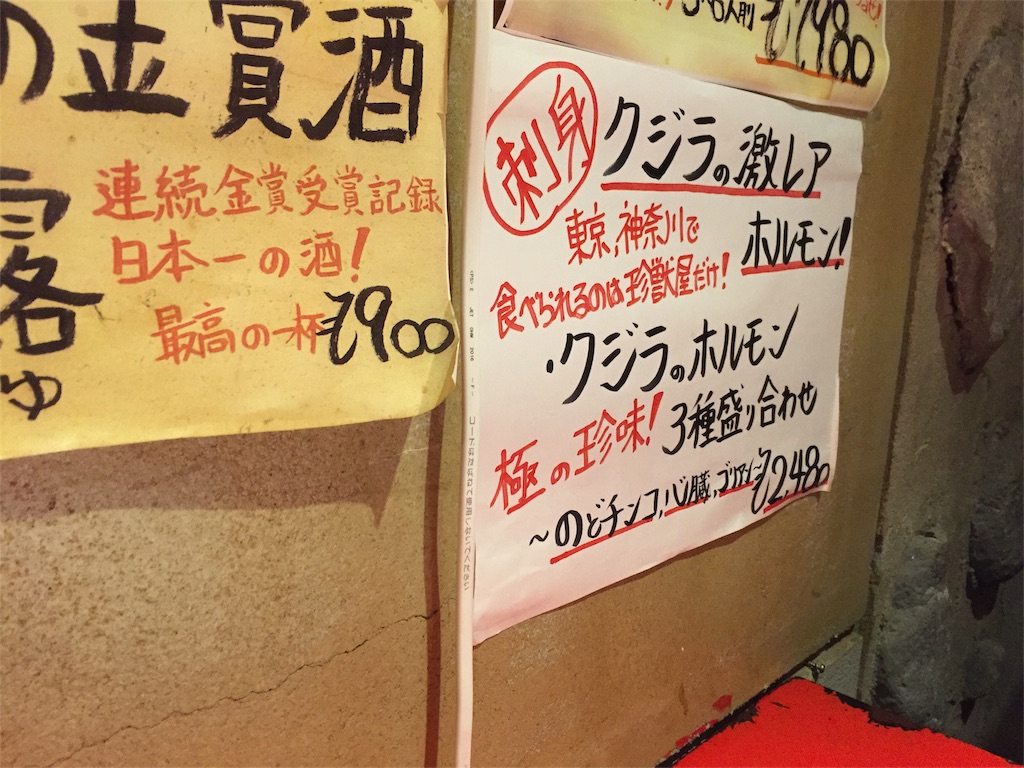 の金賞酒
連続金賞受賞記録
日本一の酒!
最高の一杯 ¥900
ゅ
3~5人前 ¥1,980
刺身
クジラの激レア
ホルモン!
東京,神奈川で
食べられるのは珍獣屋だけ!
・クジラのホルモン
極の珍味! 3種盛り合わせ
~のどチンコ,心臓, ¥2,480